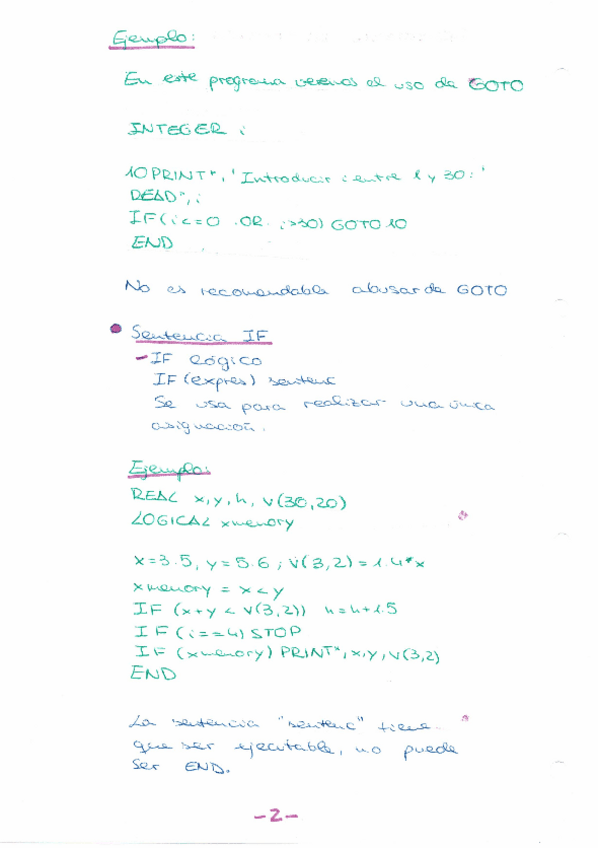 Ejemplo:
En este programa veremos el uso de GOTO
INTEGER i
10 PRINT*, 'Introducir i entre 1 y 30:'
READ*, i
IF(i<=0 .OR. i>30) GOTO 10
END
No es recomendable abusar de GOTO
Sentencia IF
- IF lógico
IF (expres) sentenc
Se usa para realizar una única
asignación.
Ejemplo:
REAL x, y, h, v(30,20)
LOGICAL xmenory
x=3.5, y=5.6; v(3,2)=1.4*x
xmenory = x<y
IF (x+y < v(3,2)) h=h+1.5
IF (i==4) STOP
IF (xmenory) PRINT*, x, y, v(3,2)
END
La sentencia "sentenc" tiene
que ser ejecutable, no puede
ser END.
-2-